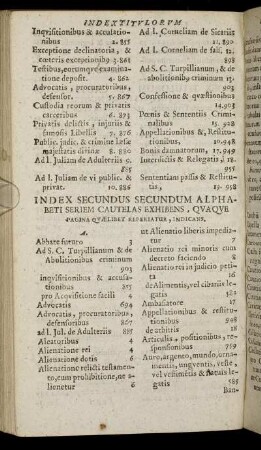 INDEX TITVLORVM
Inquisitionibus & accusatio-
nibus 2. 855
Exceptione declinatoria, &
cæteris exceptionibꝰ 3. 861
Testibus, eorumque examina-
tione deposit. 4. 862
Advocatis, procuratoribus,
defensor. 5. 867
Custodia reorum & privatis
carceribus 6. 873
Privatis delictis, injuriis &
famosis libellis 7. 876
Public. judic. & crimine læsæ
majestatis divina 8. 880
Ad l. Juliam de Adulteriis 9.
885
Ad l. Juliam de vi public. &
privat. 10. 886
Ad l. Corneliam de Sicariis
11, 890
Ad l. Corneliam de fals. 12.
898
Ad S. C. Turpillianum, & de
abolitionib9 criminum 13.
903
Confessione & quæstionibus
14. 903
Pœnis & Sententiis Crimi-
nalibus 15. 923
Appellationibus &, Restitu-
tionibus, 16. 948
Bonis damnatorum, 17. 949
Interdictis & Relegatis, 18.
955
Sententiam passis & Restitu-
tis, 19. 958
INDEX SECUNDUS SECUNDUM ALPHA-
BETI SERIEM CAUTELAS EXHIBENS, QVAQVE
PAGINA QVÆLIBET REPERIATUR, INDICANS.
A.
Abbate futuro 3
Ad S. C. Turpillianum & de
Abolitionibus criminum
903
inquisitionibus & accusa-
tionibus 855
pro Acquisitione facili 4
Advocatis 694
Advocatis, procuratoribus,
defensoribus 867
ad l. Jul. de Adulteriis 885
Aleatoribus 4
Alienatione rei 4
Alienatione dotis 6
Alienatione relicti testamen-
to, cum prohibitione, ne a-
lienetur 6
ut Alienatio liberis impedia-
tur 7
Alienatio rei minoris cum
decreto faciendo 8
Alienatio rei in judicio petitæ
16
de Alimentis, vel cibariis le-
gatis 154
Ambasiatore 17
Appellationibus & restitu-
tionibus 908
de Arbitris 18
Articulis, positionibus, re-
sponsionibus 759
Auro, argento, mundo, orna-
mentis, unguentis, veste,
vel vestimētis & statuis le-
gatis 585
Ban-